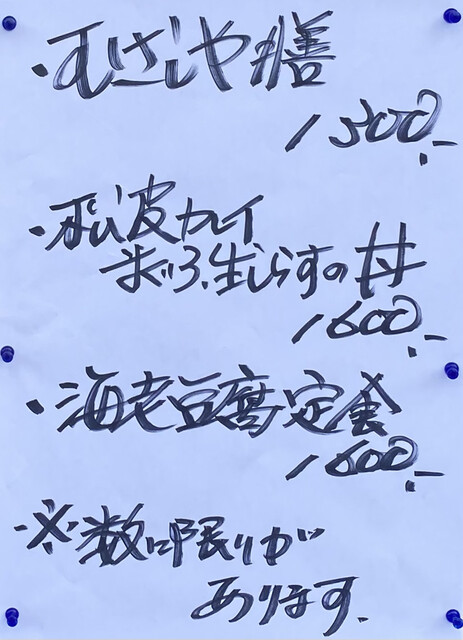 ・むさしや膳
1300.-
・松皮カレイ
まぐろ、生しらすの丼
1600.-
・海老豆腐定食
1600.-
※数に限りが
あります.